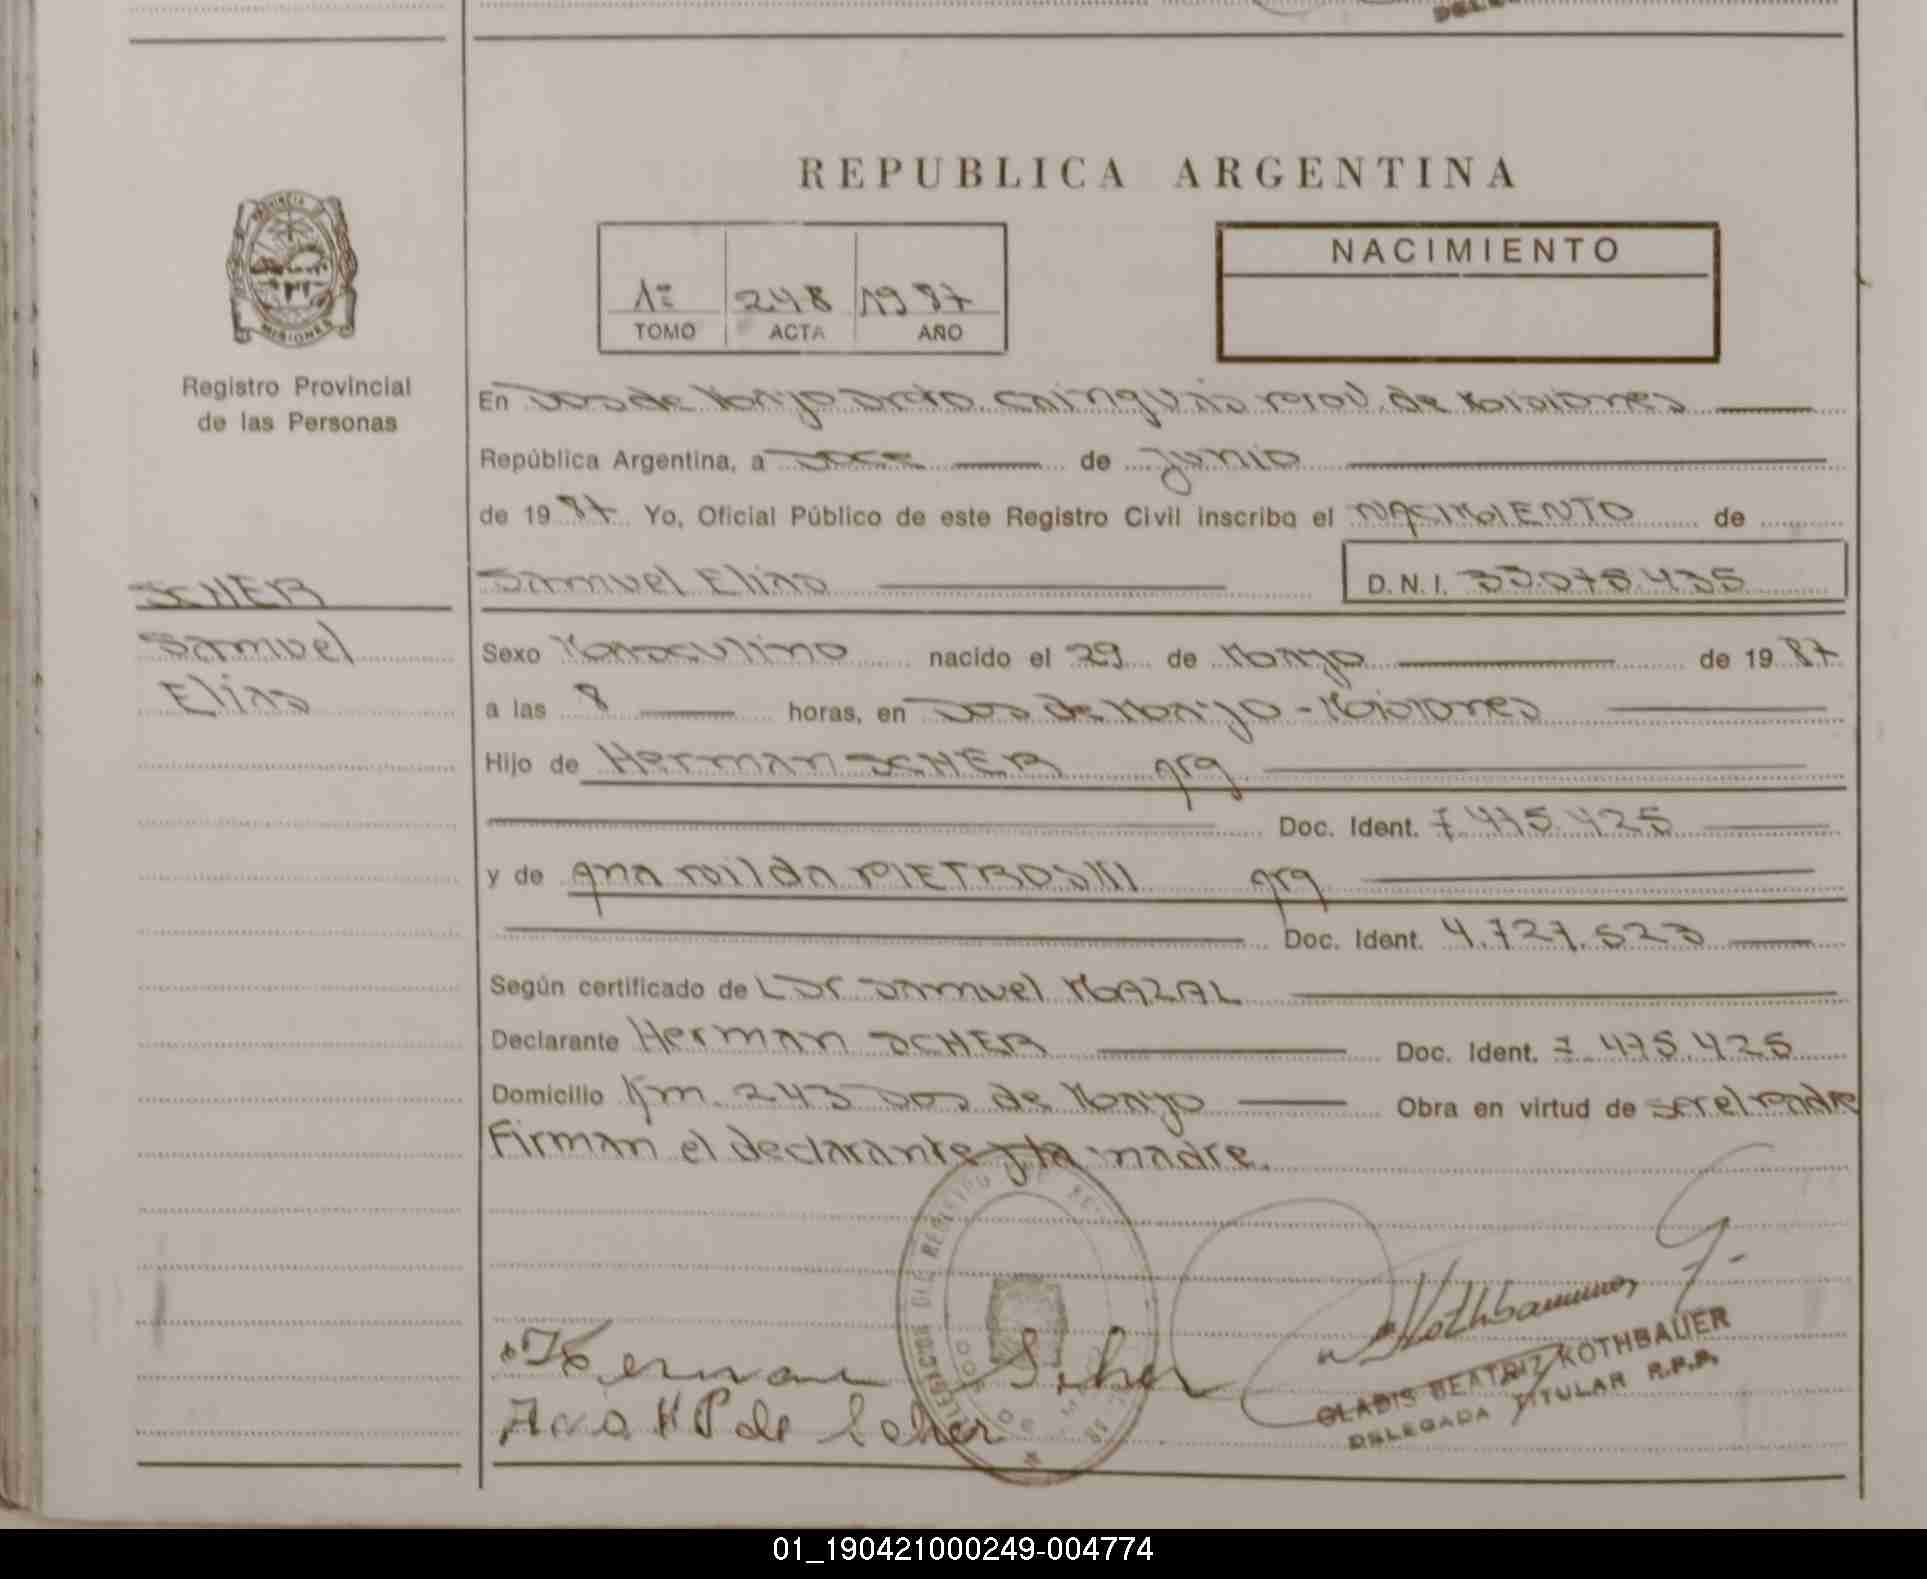 REPUBLICA ARGENTINA
PROVINCIA
MISIONES
Registro Provincial
de las Personas
1º 248 1987
TOMO ACTA AÑO
NACIMIENTO
En Dos de Mayo Dpto. Cainguás Prov. de Misiones
República Argentina, a Doce de Junio
de 1987 Yo, Oficial Público de este Registro Civil inscribo el NACIMIENTO de
SCHER
Samuel Elias D.N.I. 33.075.435
Samuel
Elias
Sexo Masculino nacido el 29 de Mayo de 1987
a las 8 horas, en Dos de Mayo - Misiones
Hijo de Herman SCHER arg
Doc. Ident. 7.475.425
y de Ana Hilda PIETROSKI arg
Doc. Ident. 4.727.523
Según certificado de Dr Samuel MAZAL
Declarante Herman SCHER Doc. Ident. 7.475.425
Domicilio Km. 243 Dos de Mayo Obra en virtud de ser el Padre
Firman el declarante y la madre.
Herman Scher
Ana H P de Scher
GLADIS BEATRIZ KOTHBAUER
DELEGADA TITULAR R.P.P.
01_190421000249-004774